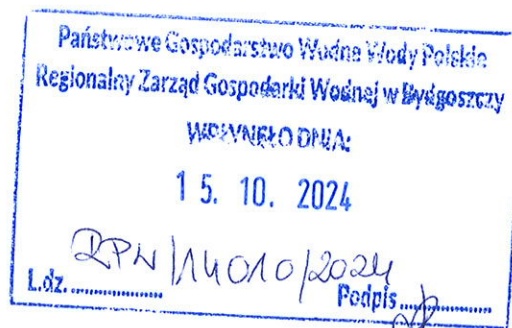 Państwowe Gospodarstwo Wodne Wody Polskie
Regionalny Zarząd Gospodarki Wodnej w Bydgoszczy
WPŁYNĘŁO DNIA:
15. 10. 2024
RPW/14010/2024
L.dz. .............. Podpis ..............